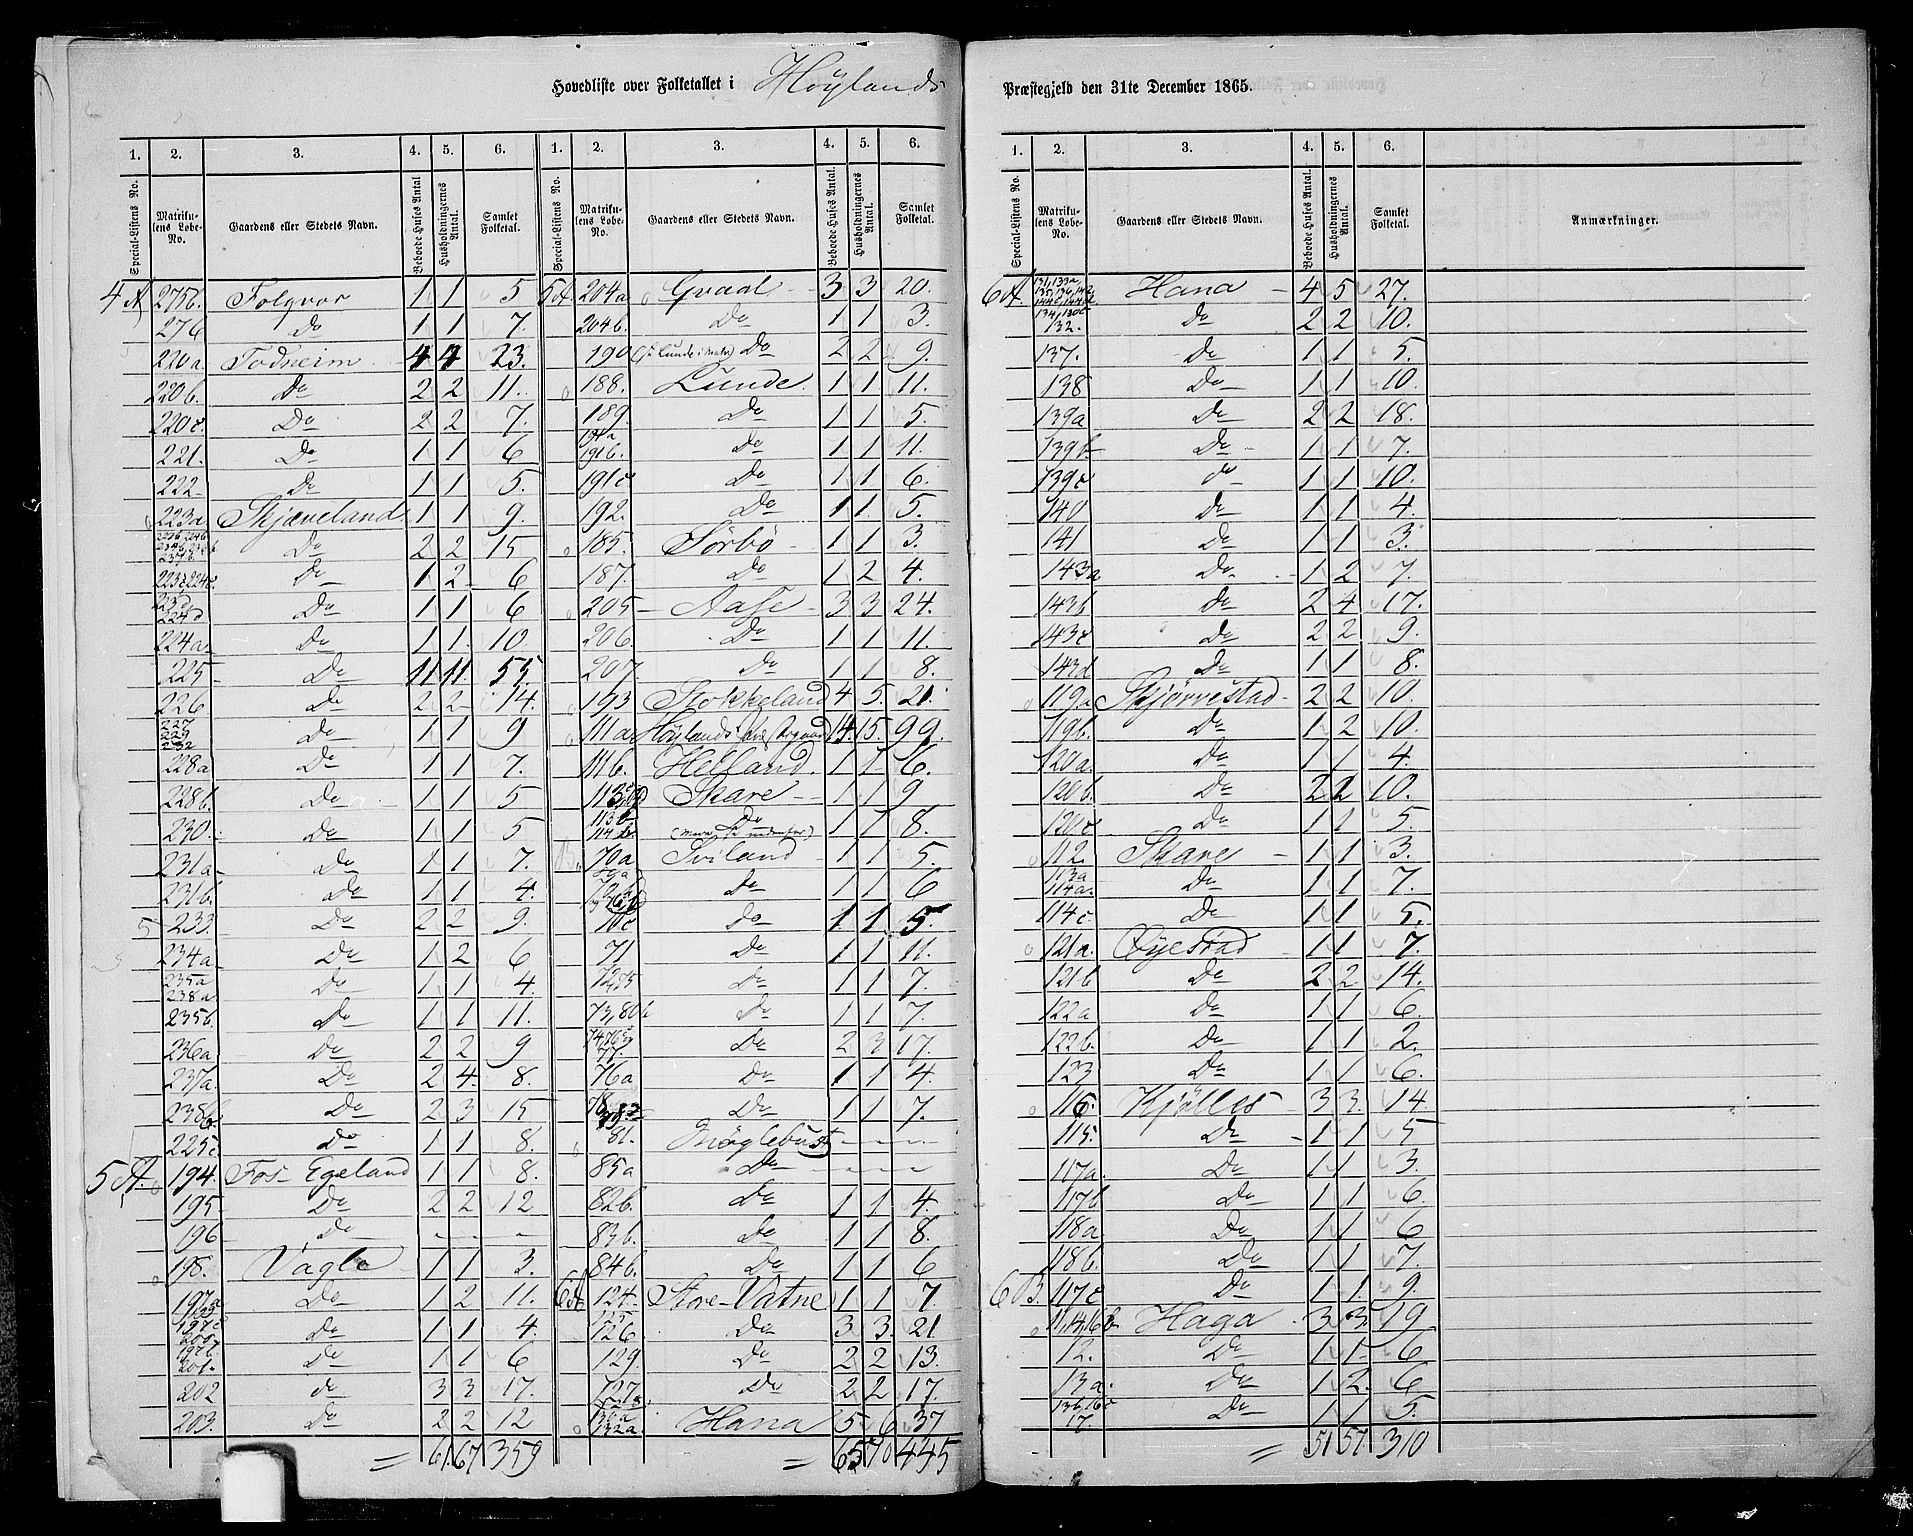 Hovedliste over Folketallet i Höylands
1. 2. 3. 4. 5. 6. 1. 2. 3. 4. 5. 6.
Special-Listens No. Matrikulens Løbe-No. Gaardens eller Stedets Navn. Beboede Huses Antal Husholdningernes Antal. Samlet Folketal. Special-Listens No. Matrikulens Løbe-No. Gaardens eller Stedets Navn. Beboede Huses Antal. Husholdningernes Antal. Samlet Folketal.
4 A 275b. Folqvor 1 1 5
276 Do 1 1 7.
220a Todneim 4 4 23.
220b. Do 2 2 11.
220c. Do 2 2 7.
221. Do 1 1 6
222 Do 1 1 5.
223a Skjæveland 1 1 9.
Do 2 2 15
223c 224c. Do 1 2 6
223d 224d Do 1 1 6
224a Do 1 1 10
225 Do 11 11. 55.
226 Do 2 2 14.
227 229 232 Do 1 1 9
228a Do 1 1 7.
228b. Do 1 1 5
230. Do 1 1 5
231a Do 1 1 7.
231b. Do 1 1 4.
233. Do 2 2 9.
234a Do 1 2 6
235a 238a Do 1 1 4
235b. Do 1 1 11.
236a Do 2 2 9
237a. Do 2 4. 8.
238b. Do 2 3 15
225c Do 1 1 8.
5 A. 194. Fos-Egeland 1 1 8.
195 Do 2 2 12
196 Do - - -
198. Vagle 1 1 3.
197a Do 1 2 11.
197c 200. Do 1 1 4.
197b. 201. Do 1 1 6
202 do 3 3 17.
203. Do 2 2 12
= 61. 67 359
5 A 204a Gvaal 3 3 20.
204b. Do 1 1 3.
190 Do 2 2 9.
188. Lunde. 1 1 11.
189. Do 1 1 5
191a 191b. Do 1 1 11.
191c Do 1 1 6.
192. Do 1 1. 5.
185. Sörbö 1 1 3.
187. Do 1 2 4.
205 Aase 3 3 24.
206. Do 1 1 11.
207. Do 1 1 8.
193 Stokkeland 4 5. 21.
111a Höylands 14. 15. 99.
111b. Helland. 1 1 6.
Skare 1 1 9
113b. Do 1 1 8.
70a Sviland 1 1 5.
Do 1 1 6
70c Do 1 1 5
71 Do 1 1 11.
72, 75 Do 1 1 7.
73, 80b Do 1 1 7.
77. Do 2 3 17.
76a Do 1 1 4.
Do 1 1 7.
81. - - -
85a Do - - -
82b. Do 1 1 4.
83b. Do 1 1 8.
84b. Do 1 1 6
6 A 124. Store-Vatne 1 1 7.
125 126 Do 3 3. 21
129. Do 2 2 13.
127a. Do 2 2 17.
130a 132a. Hana 5 6 37
= 65 70 445
Præstegjeld den 31te December 1865.
1. 2. 3. 4. 5. 6.
Special-Listens No. Matrikulens Løbe-No. Gaardens eller Stedets Navn. Beboede Huses Antal. Husholdningernes Antal. Samlet Folketal. Anmærkninger.
6 A. Hana 4 5 27.
132. Do 2 2 10.
137. Do 1 1 5.
138 Do 1 1 10.
139a Do 2 2 18.
139b Do 1 1 7.
139c do 1 1 10.
140 Do 1 1 4.
141 Do 1 1 3.
143a Do 1 2 7.
143b Do 2 4 17.
143c Do 2 2 9.
143d Do 1 1 8.
119a Skjörvestad 2 2 10.
119b. Do 1 2 10.
120a. Do 1 1 4.
120b. Do 2 2 10.
120c Do 1 1 5.
112. Skare 1 1 3.
113a 114a. Do 1 1 7.
114c Do 1 1 5.
121a. Öyestad 1 1 7.
121b Do 2 2 14.
122a Do 1 1 6
122b. Do 1 1 2.
123 Do 1 1 6.
116. Kjölles 3 3. 14.
115. Do 1 1 5
117a. Do 1 1 3.
117b Do 1 1 6
118a Do 1 1 6
118b. Do 1 1 7.
6 B. 117c Do 1 1. 9.
11, 14, 16b Haga 3 3. 19
12. Do 1 1 6
13a. Do 1 2. 6
13b, 16c 17. Do 1 1 5.
= 51 57. 310